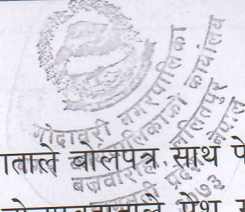 गोदावरी नगरपालिका
नगरपालिकाको कार्यालय
बज्रवाराही, ललितपुर
नेपाल
२०७३
ताले बोलपत्र साथ पे